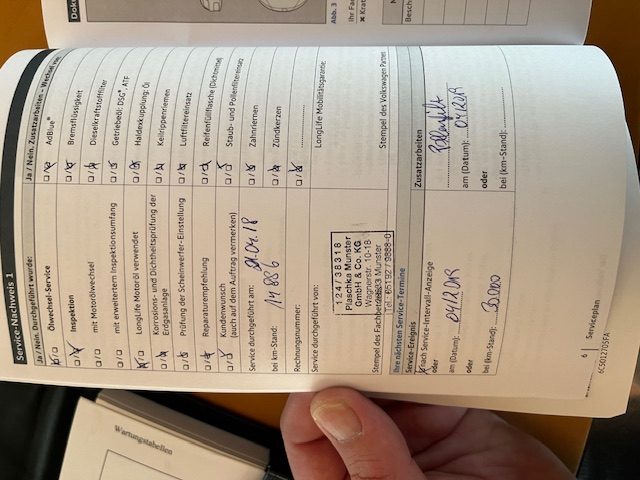 Service-Nachweis 1
Ja / Nein. Durchgeführt wurde:
Ölwechsel-Service
Inspektion
mit Motorölwechsel
mit erweitertem Inspektionsumfang
LongLife Motoröl verwendet
Korrosions- und Dichtheitsprüfung der
Erdgasanlage
Prüfung der Scheinwerfer-Einstellung
Reparaturempfehlung
Kundenwunsch
(auch auf dem Auftrag vermerken)
Service durchgeführt am:
.04.18
bei km-Stand:
14 886
Rechnungsnummer:
Service durchgeführt von:
124/38318
Plaschka Munster
GmbH & Co. KG
Wagnerstr. 10-18
29633 Munster
Tel. 05192 / 9888-0
Stempel des Fachbetriebes
Ja / Nein. Zusatzarbeiten - Wechsel von:
AdBlue®
Bremsflüssigkeit
Dieselkraftstofffilter
Getriebeöl: DSG®, ATF
Haldexkupplung: Öl
Keilrippenriemen
Luftfiltereinsatz
Reifenfüllflasche (Dichtmittel)
Staub- und Pollenfiltereinsatz
Zahnriemen
Zündkerzen
LongLife Mobilitätsgarantie:
Stempel des Volkswagen Partners
Ihre nächsten Service-Termine
Service-Ereignis
nach Service-Intervall-Anzeige
oder
am (Datum): 04/2019
oder
bei (km-Stand): 30.000
Zusatzarbeiten
am (Datum): 04/2019
oder
bei (km-Stand):
6 Serviceplan
6C5012705FA
Wartungstabellen
Abb. 3
Ihr Fa
Krat
Besch